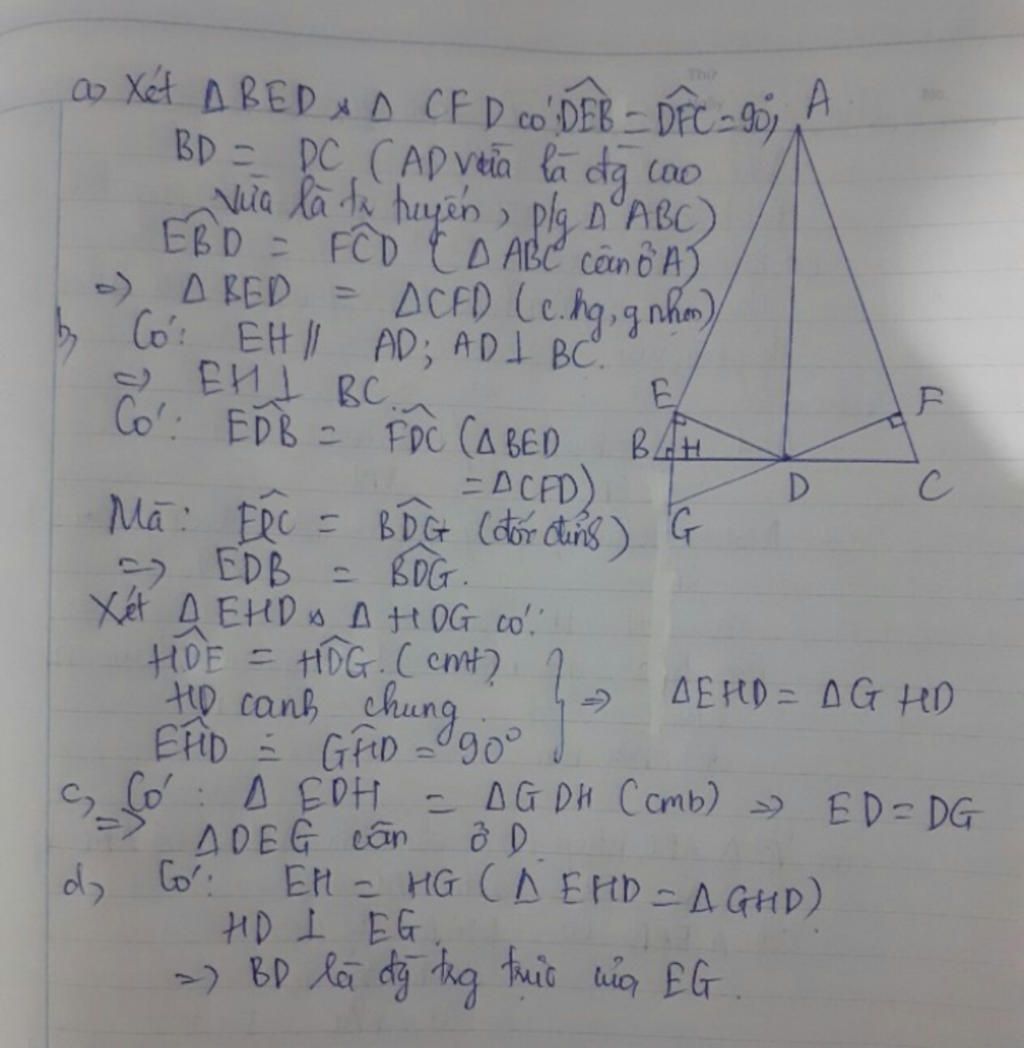 a) Xét Δ BED & Δ CFD có: DEB^ = DFC^ = 90°;
BD = DC (AD vừa là đg cao
vừa là tr tuyến, p/g Δ ABC)
EBD^ = FCD^ (Δ ABC cân ở A)
=> Δ BED = Δ CFD (c.hg, g nhọn)
b, Có: EH // AD; AD ⊥ BC.
=> EH ⊥ BC.
Có: EDB^ = FDC^ (Δ BED
= Δ CFD)
Mà: FDC^ = BDG^ (đối đỉnh)
=> EDB^ = BDG^.
Xét Δ EHD & Δ HDG có:
HDE^ = HDG^. (cmt)
HD cạnh chung.
EHD^ = GHD^ = 90°
} => ΔEHD = ΔGHD
c, Có: Δ EDH = ΔGDH (cmb) => ED = DG
=> ΔDEG cân ở D.
d, Có: EH = HG (Δ EHD = Δ GHD)
HD ⊥ EG.
=> BD là đg trg trực của EG.
A
E
F
B
H
D
C
G